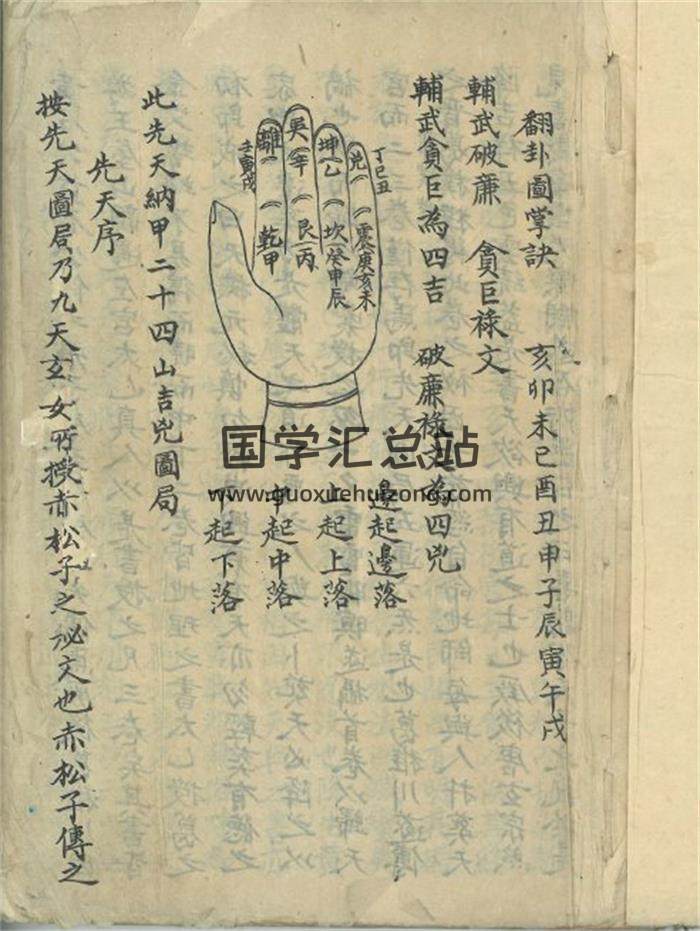 翻卦圖掌訣 亥卯未巳酉丑申子辰寅午戌
輔武破廉 貪巨祿文
輔武貪巨為四吉 破廉祿文為四兇
丁巳丑
兌
震庚亥未
坤乙
坎癸申辰
巽辛
艮丙
離
壬寅戌
乾甲
邊起邊落
上起上落
中起中落
下起下落
此先天納甲二十四山吉兇圖局
先天序
按先天圖局乃九天玄女所授赤松子之祕文也赤松子傳之
国学汇总站
www.guoxuehuizong.com